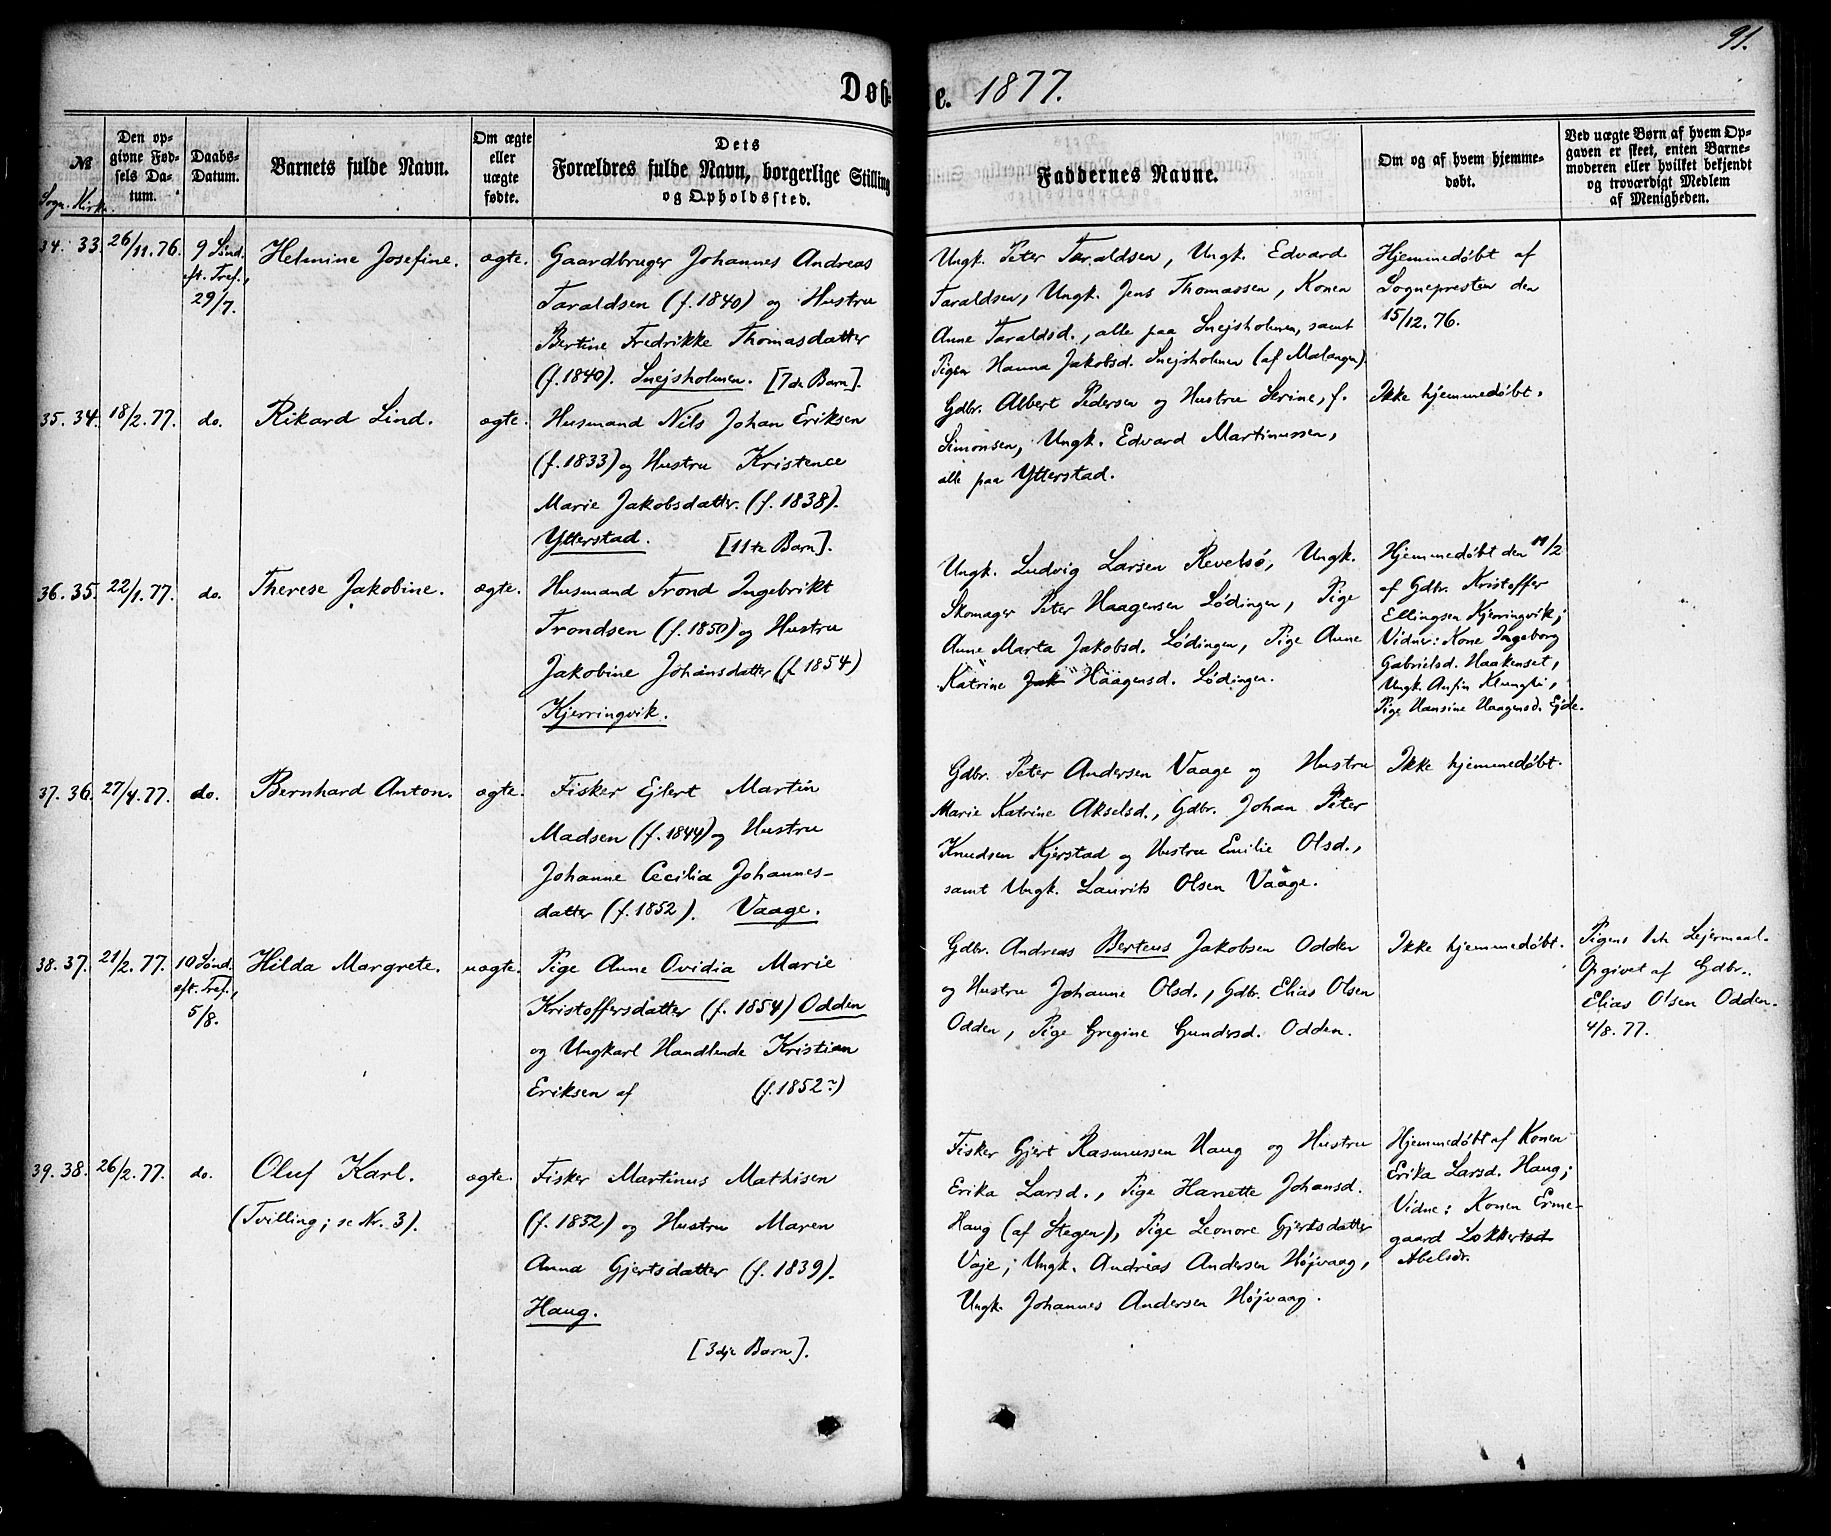 91.
Døb- e. 1877.
№
Sogn. Kirk.
Den op-
givne Fød-
sels Da-
tum.
Daabs-
Datum.
Barnets fulde Navn.
Om ægte
eller
uægte
fødte.
Dets
Forældres fulde Navn, borgerlige Stilling
og Opholdssted.
Faddernes Navne.
Om og af hvem hjemme-
døbt.
Ved uægte Børn af hvem Op-
gaven er skeet, enten Barne-
moderen eller hvilket bekjendt
og troværdigt Medlem
af Menigheden.
34. 33. 26/11.76. 9 Sønd.
eft. Tref.,
29/7.
Helmine Josefine.
ægte.
Gaardbruger Johannes Andreas
Taraldsen (f. 1840) og Hustru
Bertine Fredrikke Thomasdatter
(f. 1840). Snejsholmen. [7de Barn].
Ungk. Peter Taraldsen, Ungk. Edvard
Taraldsen, Ungk. Jens Thomassen, Konen
Anne Taraldsd., alle paa Snejsholmen, samt
Pigen Hanna Jakobsd. Snejsholmen (af Malangen)
Hjemmedøbt af
Sognepresten den
15/12.76.
35. 34. 18/2.77. do.
Rikard Lind.
ægte.
Husmand Nils Johan Eriksen
(f. 1833) og Hustru Kristence
Marie Jakobsdatter. (f. 1838).
Ytterstad. [11te Barn].
Gdbr. Albert Pedersen og Hustru Serine, f.
Simonsen, Ungk. Edvard Martinussen,
alle paa Ytterstad.
Ikke hjemmedøbt.
36. 35. 22/1.77. do.
Therese Jakobine.
ægte.
Husmand Trond Ingebrikt
Trondsen (f. 1850) og Hustru
Jakobine Johansdatter (f. 1854)
Kjerringvik.
Ungk. Ludvig Larsen Revelsø, Ungk.
Skomager Peter Haagensen Lødingen, Pige
Anne Marta Jakobsd. Lødingen, Pige Anne
Katrine Jak Haagensd. Lødingen.
Hjemmedøbt den 11/2
af Gdbr. Kristoffer
Ellingsen Kjerringvik;
Vidner: Kone Ingeborg
Gabrielsd. Haakenset,
Ungk. Anfin
Pige Hansine Haagensd. Ejde.
37. 36. 27/4.77. do.
Bernhard Anton.
ægte.
Fisker Ejlert Martin
Madsen (f. 1844) og Hustru
Johanne Cecilia Johannes-
datter (f. 1852). Vaage.
Gdbr. Peter Andersen Vaage og Hustru
Marie Katrine Akselsd., Gdbr. Johan Peter
Knudsen Kjerstad og Hustru Emilie Olsd.,
samt Ungk. Laurits Olsen Vaage.
Ikke hjemmedøbt.
38. 37. 21/2.77. 10 Sønd.
eft. Tref.,
5/8.
Hilda Margrete.
uægte.
Pige Anne Ovidia Marie
Kristoffersdatter (f. 1854) Odden
og Ungkarl Handlende Kristian
Eriksen af (f. 1852?)
Gdbr. Andreas Berteus Jakobsen Odden
og Hustru Johanne Olsd., Gdbr. Elias Olsen
Odden, Pige Gregine Gundersd. Odden.
Ikke hjemmedøbt.
Pigens 1ste Lejermaal.
Opgivet af Gdbr.
Elias Olsen Odden.
4/8.77.
39. 38. 26/2.77. do.
Oluf Karl.
(Tvilling; se Nr. 3).
ægte.
Fisker Martinus Mathisen
(f. 1832) og Hustru Maren
Anna Gjertsdatter (f. 1839).
Haug.
[3dje Barn].
Fisker Gjert Rasmussen Haug og Hustru
Erika Larsd., Pige Hansette Johansd.
Haug (af Stegen), Pige Leonore Gjertsdatter
Vaje; Ungk. Andreas Andersen Højvaag,
Ungk. Johannes Andersen Højvaag.
Hjemmedøbt af Konen
Erika Larsd. Haug;
Vidne: Konen Erme-
gaard Lokkertsd
Abelsdr.